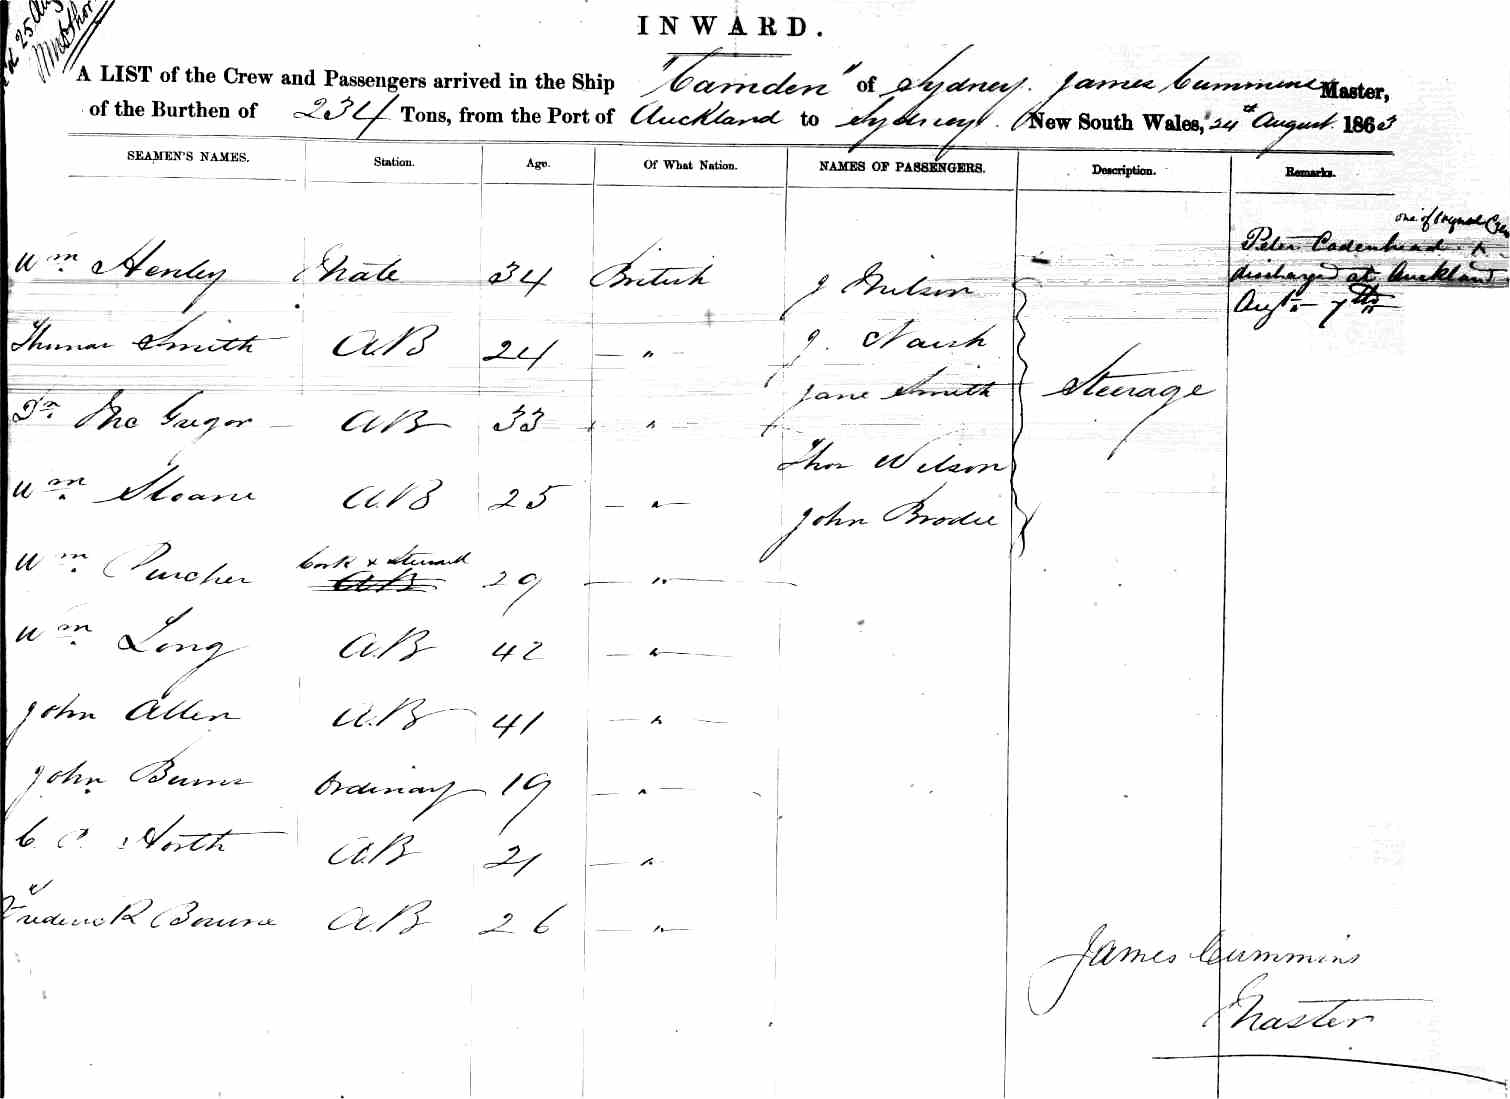 25 Aug
INWARD.
A LIST of the Crew and Passengers arrived in the Ship "Camden" of Sydney. James Cummins Master,
of the Burthen of 234 Tons, from the Port of Auckland to Sydney. New South Wales, 24th August. 1863
SEAMEN'S NAMES. Station. Age. Of What Nation. NAMES OF PASSENGERS. Description. Remarks.
one of original Crew
Peter Cadenhead
discharged at Auckland
Augt 7th
Wm Henley Mate 34 British J Nilson
Thomas Smith AB 24 — " — J. Naish
Jane Smith Steerage
Mc Gregor — AB 33 " —
Thos Wilson
Wm Sloane A.B 25 — " —
John Brodie
Wm Purcher Cook & Steward AB 29 — " —
Wm Long A.B 42 — " —
John Allen A.B 41 — " —
John Burns Ordinary 19 — " —
C. C. North A.B 21 — "
Frederick Bourne A.B 26 — " —
James Cummins
Master